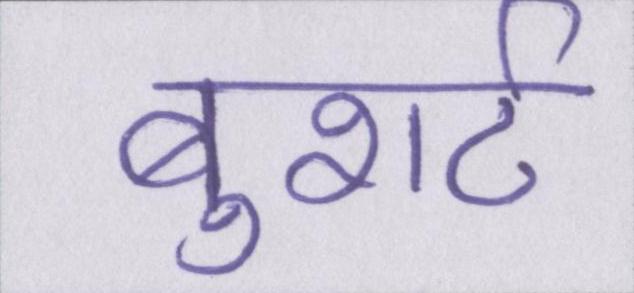 बुशर्ट